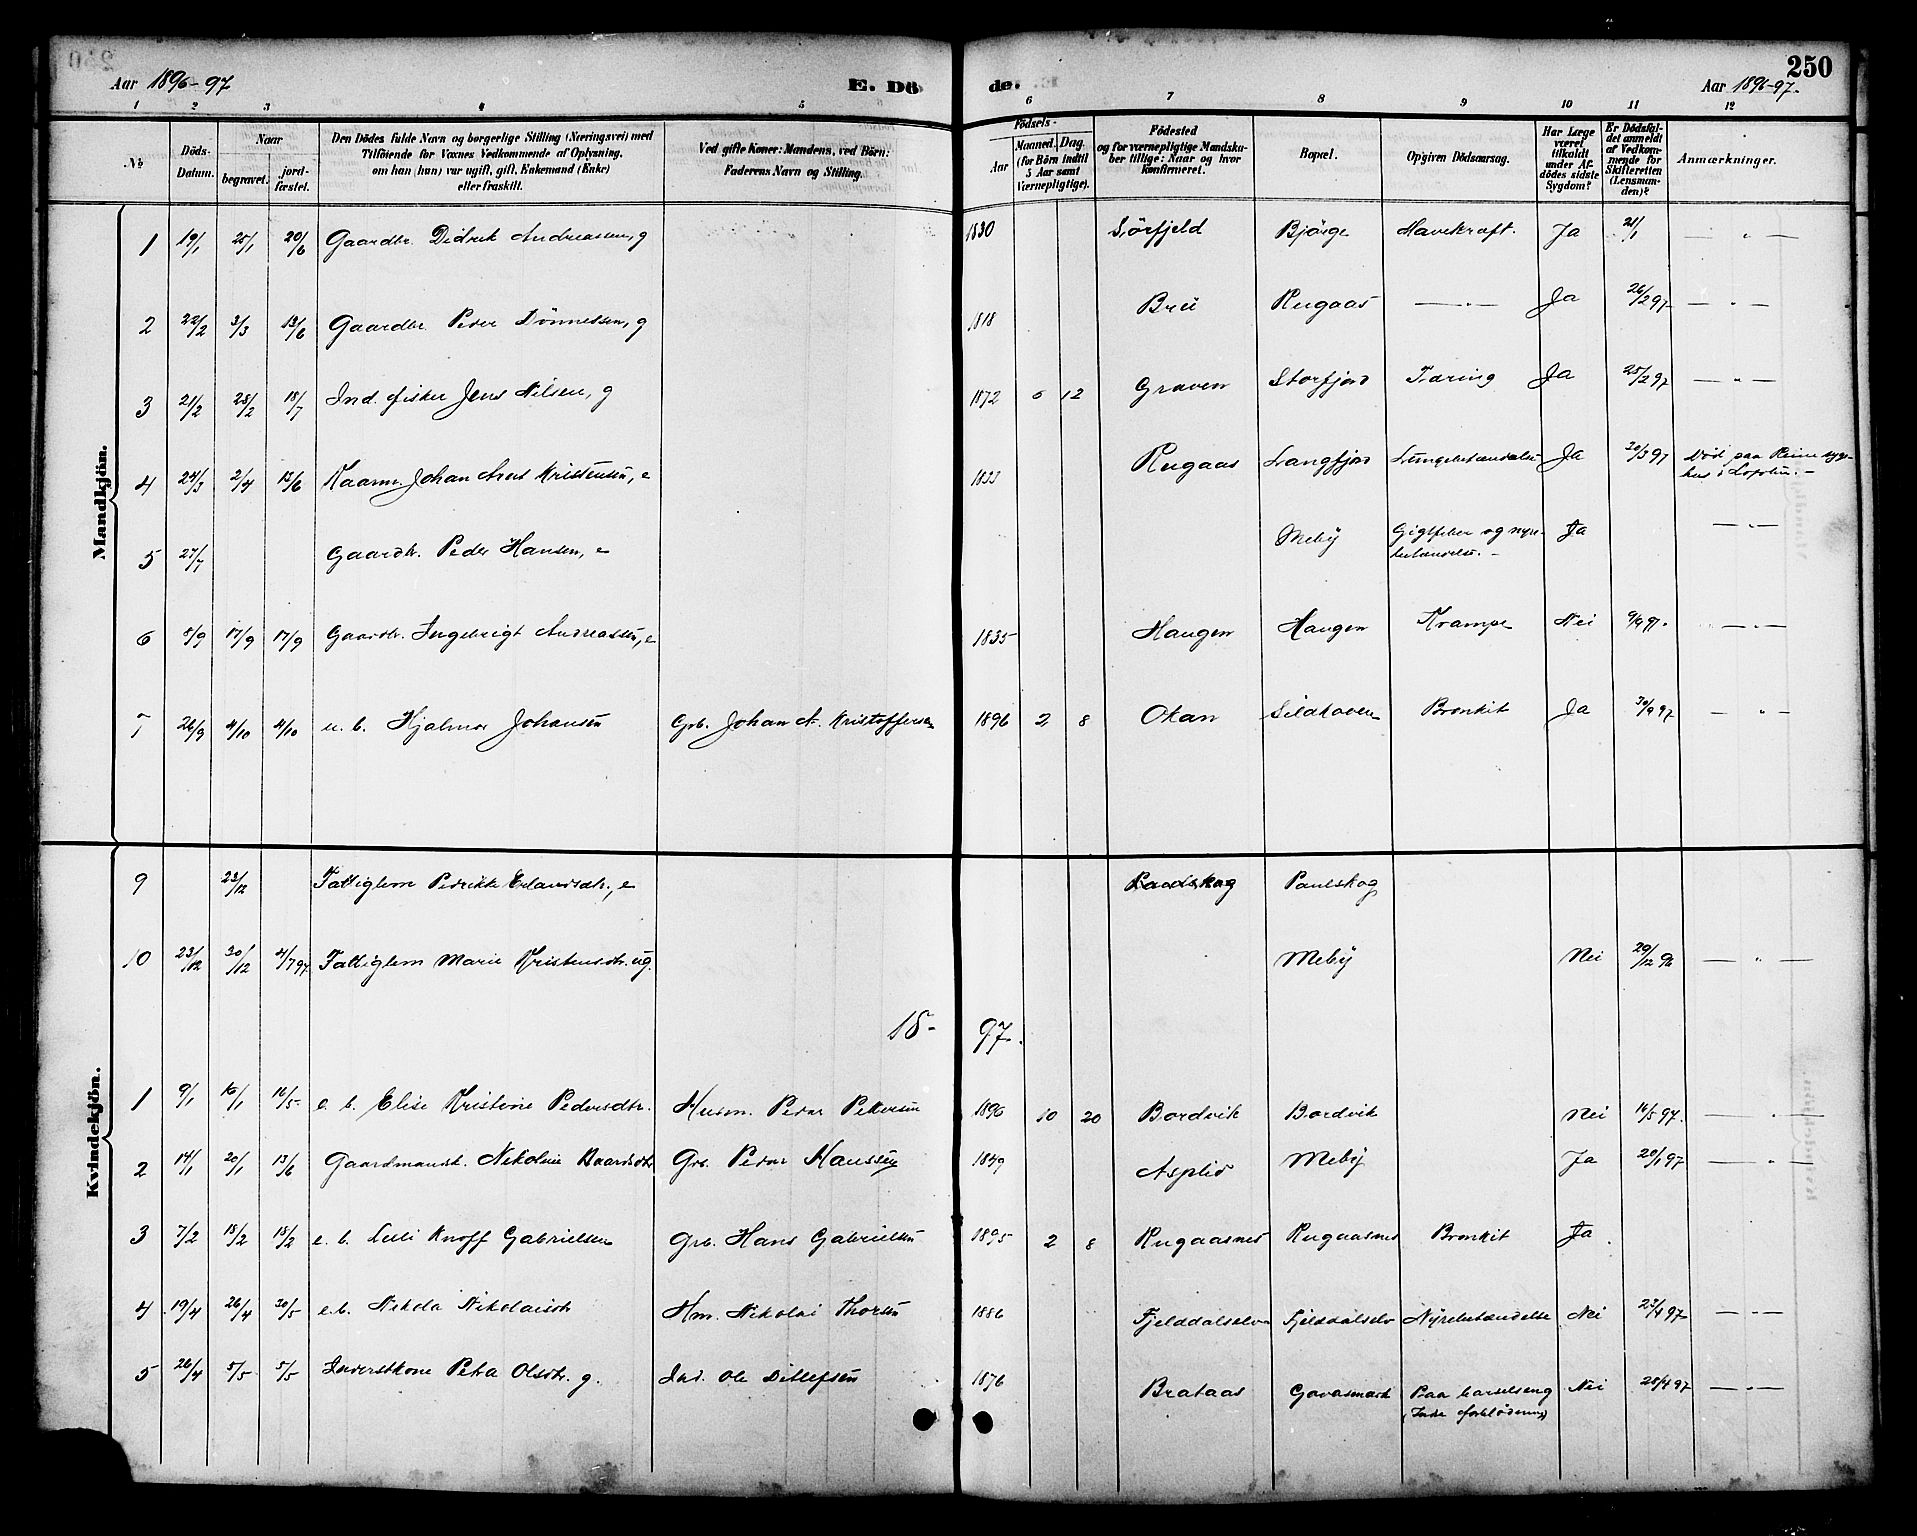 250
Aar 1896-97
E. Döde.
Aar 1896-97.
1 2 3 4 5 6 7 8 9 10 11 12
No
Döds-Datum.
Naar
begravet.
jord-fæstet.
Den Dödes fulde Navn og borgerlige Stilling (Næringsvei) med
Tilföiende for Voxnes Vedkommende af Oplysning,
om han (hun) var ugift, gift, Enkemand (Enke)
eller fraskilt.
Ved gifte Koner: Mandens, ved Börn:
Faderens Navn og Stilling.
Födsels-
Aar
Maaned. Dag.
(for Börn indtil
5 Aar samt
Værnepligtige).
Födested
og for værnepligtige Mandska-
ber tillige: Naar og hvor
konfirmeret.
Bopæl.
Opgiven Dödsaarsag.
Har Læge
været
tilkaldt
under Af-
dödes sidste
Sygdom?
Er Dödsfal-
det anmeldt
af Vedkom-
mende for
Skifteretten
(Lensman-
den)?
Anmærkninger.
Mandkjön.
1 19/1 25/1 20/6 Gaardbr. Didrik Andreassen, g 1830 Sörfjeld Bjørge Mavekræft. Ja 21/1 — " —
2 22/2 3/3 13/6 Gaardbr Peder Dönnessen, g 1818 Brii Rugaas — " — Ja 26/2 97 — " —
3 21/2 28/2 18/7 Ind. fisker Jens Nilsen, g 1872 6 12 Graven Storfjord Tæring Ja 25/2 97 — " —
4 24/3 2/4 13/6 Kaarm. Johan Arnt Kristensen, e 1833 Rugaas Langfjord Lungebetændelse Ja 30/3 97 Död paa Reine syge-
hus i Lofoten. —
5 27/7 Gaardbr. Peder Hansen, e Meby Gigtfeber og nyre-
betændelse. — Ja — " —
6 8/9 17/9 17/9 Gaardbr. Ingebrigt Andreassen, e 1835 Haugen Haugen Krampe Nei 9/9 97. — " —
7 26/9 4/10 4/10 u. b. Hjalmar Johansen Grb. Johan A. Kristoffersen 1896 2 8 Okan Sildhaven Bronkit Ja 30/9 97 — " —
Kvindekjön.
9 23/12 Fattiglem Pedrikke Erlandsdtr, e Paulskog
10 23/12 30/12 4/7 97 Fattiglem Marie Kristensdtr. ug. Meby Nei 29/12 96 — " —
18- 97.
1 9/1 16/1 16/5 e. b. Elise Kristine Pedersdtr. Husm. Peder Pettersen 1896 10 20 Bordvik Bordvik Nei 16/5 97. — " —
2 14/1 20/1 13/6 Gaardmandsk. Nikoline Baardsdtr Grb. Peder Hanssen 1849 Asplid Meby Ja 20/1 97 — " —
3 7/2 18/2 18/2 e. b. Lulli Knoff Gabrielsen Grb. Hans Gabrielsen 1895 2 8 Rugaasnes Rugaasnes Bronkit Ja.
4 19/4 26/4 30/5 e.b. Nikola Nikolaisdtr Hm. Nikolai Thorsen 1886 Fjelddalselv Fjelddalselv Nyrebetændelse Nei 23/4 97 — " —
5 26/4 5/5 5/5 Inderstkone Petra Olsdtr. g. Ind. Ole Ditlefsen 1876 Brataas Gavasmark Paa barselseng Nei 28/4 97 — " —